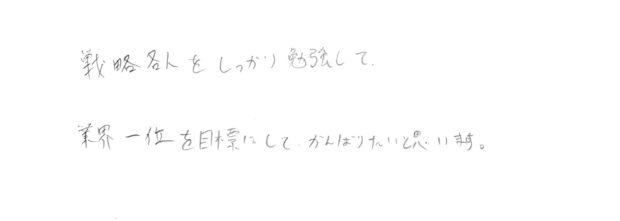 戦略各人をしっかり勉強して、
業界一位を目標にして、がんばりたいと思います。